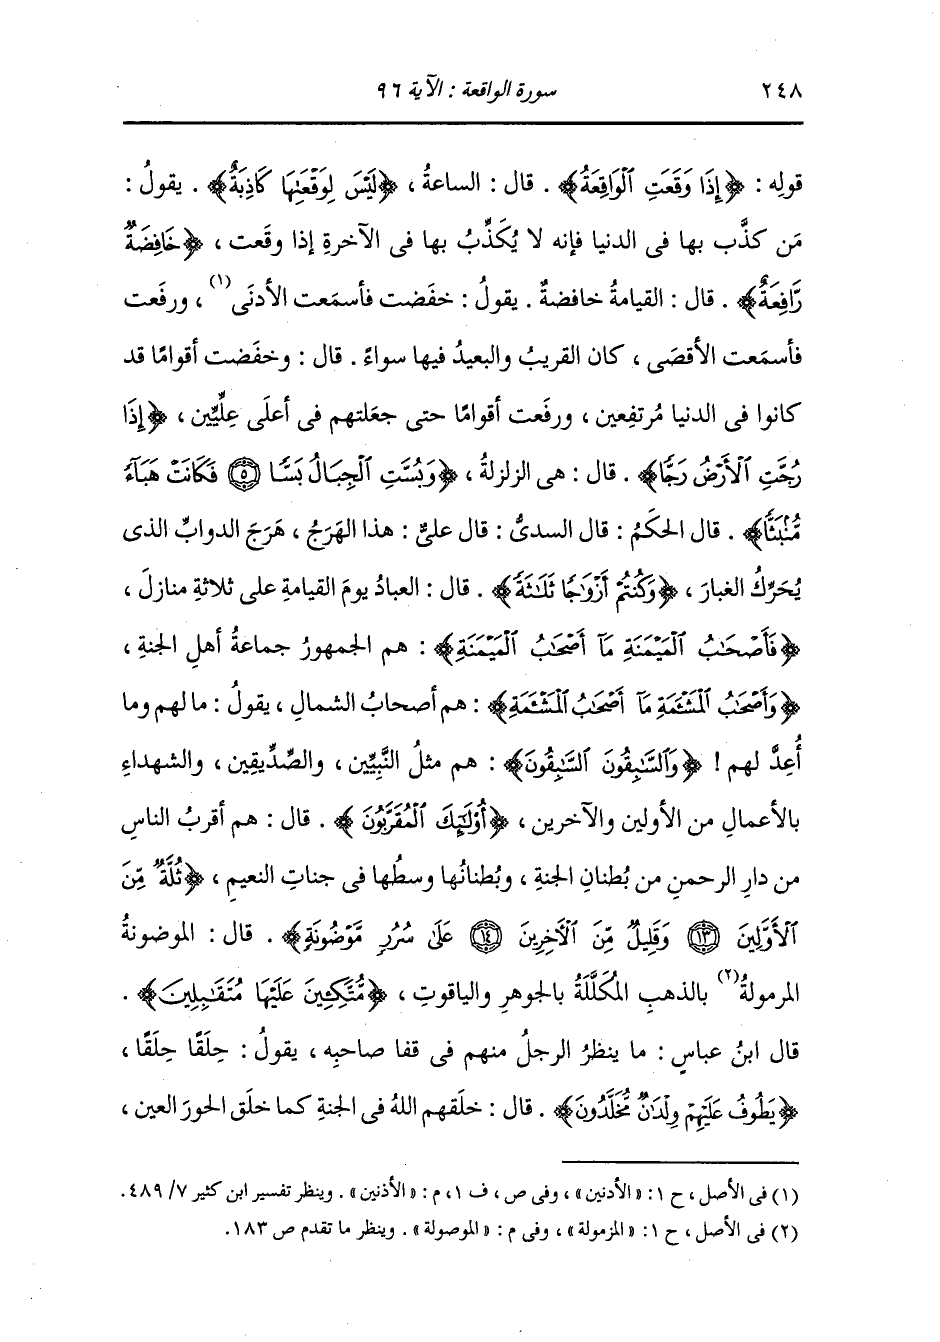 ٢٤٨ سورة الواقعة : الآية ٩٦
قولِه : ﴿إِذَا وَقَعَتِ ٱلْوَاقِعَةُ﴾ . قال : الساعةُ ، ﴿لَيْسَ لِوَقْعَتِهَا كَاذِبَةٌ﴾ . يقولُ :
مَن كذَّب بها فى الدنيا فإنه لا يُكَذِّبُ بها فى الآخرةِ إذا وقَعت ، ﴿خَافِضَةٌ
رَّافِعَةٌ﴾ . قال : القيامةُ خافضةٌ . يقولُ : خفَضت فأسمَعت الأدنَى(١) ، ورفَعت
فأسمَعت الأقصَى ، كان القريبُ والبعيدُ فيها سواءً . قال : وخفَضت أقوامًا قد
كانوا فى الدنيا مُرتفِعين ، ورفَعت أقوامًا حتى جعَلتهم فى أعلَى عِلِّيِّين ، ﴿إِذَا
رُجَّتِ ٱلْأَرْضُ رَجًّا﴾ . قال : هى الزلزلةُ ، ﴿وَبُسَّتِ ٱلْجِبَالُ بَسًّا ۝٥ فَكَانَتْ هَبَآءً
مُّنۢبَثًّا﴾ . قال الحكَمُ : قال السدىُّ : قال علىٌّ : هذا الهَرَجُ ، هَرَجَ الدوابِّ الذى
يُحَرِّكُ الغبارَ ، ﴿وَكُنتُمْ أَزْوَٰجًا ثَلَٰثَةً﴾ . قال : العبادُ يومَ القيامةِ على ثلاثةِ منازلَ ،
﴿فَأَصْحَٰبُ ٱلْمَيْمَنَةِ مَآ أَصْحَٰبُ ٱلْمَيْمَنَةِ﴾ : هم الجمهورُ جماعةُ أهلِ الجنةِ ،
﴿وَأَصْحَٰبُ ٱلْمَشْـَٔمَةِ مَآ أَصْحَٰبُ ٱلْمَشْـَٔمَةِ﴾ : هم أصحابُ الشمالِ ، يقولُ : ما لهم وما
أُعِدَّ لهم ! ﴿وَٱلسَّٰبِقُونَ ٱلسَّٰبِقُونَ﴾ : هم مثلُ النَّبِيِّين ، والصِّدِّيقِين ، والشهداءِ
بالأعمالِ من الأولين والآخرين ، ﴿أُوْلَٰٓئِكَ ٱلْمُقَرَّبُونَ﴾ . قال : هم أقربُ الناسِ
من دارِ الرحمنِ من بُطنانِ الجنةِ ، وبُطنانُها وسطُها فى جناتِ النعيمِ ، ﴿ثُلَّةٌ مِّنَ
ٱلْأَوَّلِينَ ۝١٣ وَقَلِيلٌ مِّنَ ٱلْآخِرِينَ ۝١٤ عَلَىٰ سُرُرٍ مَّوْضُونَةٍ﴾ . قال : الموضونةُ
المرمولةُ(٢) بالذهبِ المُكَلَّلَةُ بالجوهرِ والياقوتِ ، ﴿مُّتَّكِـِٔينَ عَلَيْهَا مُتَقَٰبِلِينَ﴾ .
قال ابنُ عباسٍ : ما ينظرُ الرجلُ منهم فى قفا صاحبِه ، يقولُ : حِلَقًا حِلَقًا ،
﴿يَطُوفُ عَلَيْهِمْ وِلْدَٰنٌ مُّخَلَّدُونَ﴾ . قال : خلَقهم اللهُ فى الجنةِ كما خلَق الحورَ العين ،
(١) فى الأصل ، ح ١ : « الأدنين » ، وفى ص ، ف ١ ، م : « الأذنين » . وينظر تفسير ابن كثير ٧/ ٤٨٩ .
(٢) فى الأصل ، ح ١ : « المزمولة » ، وفى م : « الموصولة » . وينظر ما تقدم ص ١٨٣ .